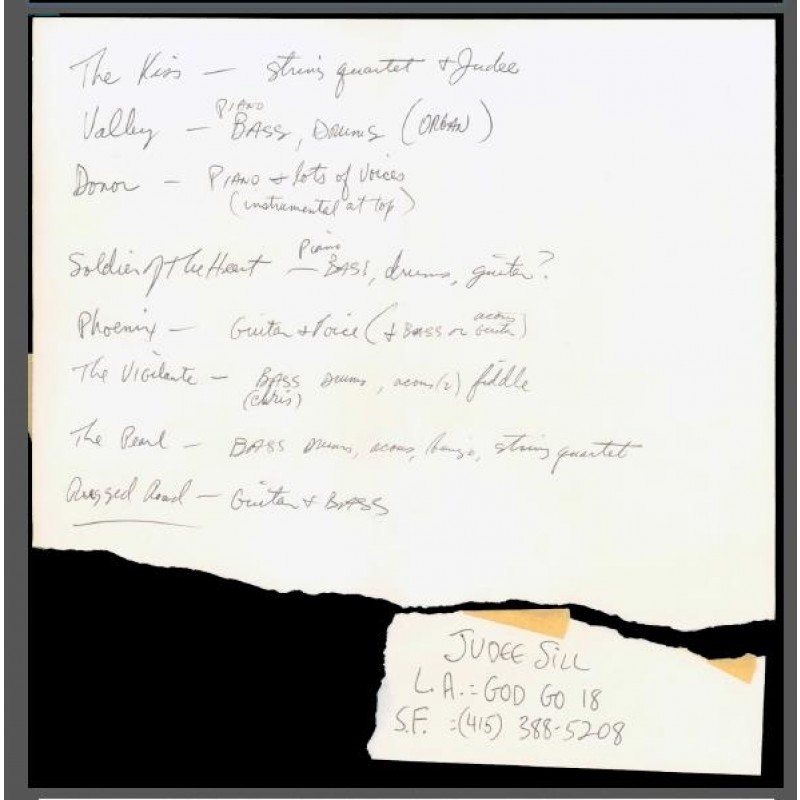 The Kiss — string quartet & Judee
PIANO
Valley — BASS, DRUMS (ORGAN)
Donor — PIANO & lots of voices
(instrumental at top)
Piano
Soldier of The Heart — BASS, drums, guitar?
acous
Phoenix — Guitar & Voice (& BASS or Guitar)
The Vigilante — BASS DRUMS, acous(2) fiddle
(Chris)
The Pearl — BASS DRUMS, acous, banjo, string quartet
Rugged Road — Guitar & BASS
JUDEE SILL
L.A.:= GOD GO 18
S.F. :(415) 388-5208